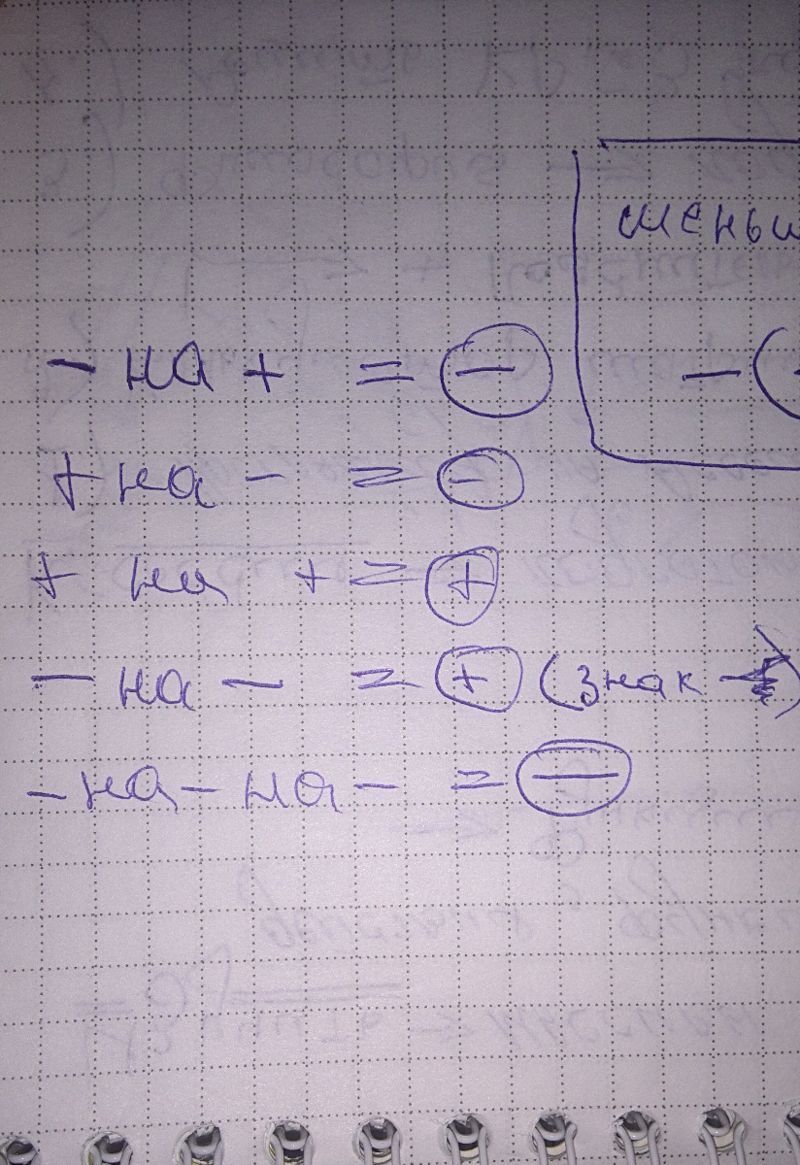 меньш
−(
− на + = −
+ на − = −
+ на + = +
− на − = + (знак
− на − на − = −